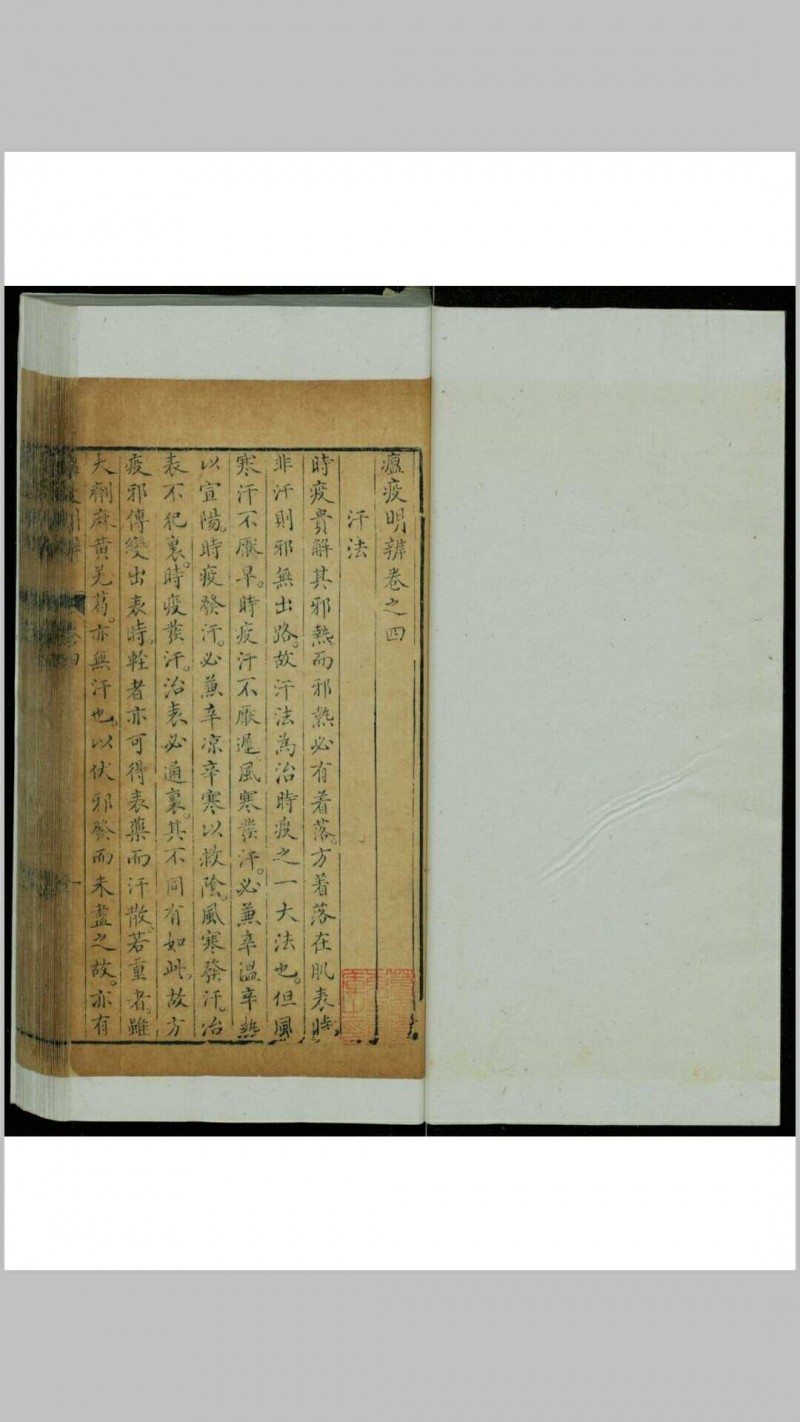 瘟疫明辨卷之四
汗法
時疫貴解其邪熱而邪熱必有着落。方着落在肌表時
非汗則邪無出路。故汗法為治時疫之一大法也。但風
寒汗不厭早。時疫汗不厭遲。風寒發汗。必兼辛溫辛熱
以宣陽。時疫發汗。必兼辛凉辛寒以救陰。風寒發汗。治
表不犯裏。時疫發汗。治表必通裏。其不同有如此。故方
疫邪傳變出表時。輕者亦可得表藥而汗散。若重者。雖
大劑麻黄羌葛。亦無汗也。以伏邪發而未盡之故。亦有